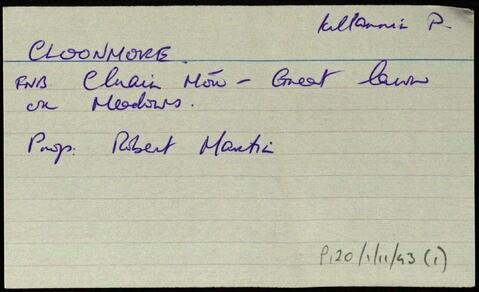 Killannin P.
CLOONMORE.
FNB Cluain Mór - Great lawn
or Meadows.
Prop. Robert Martin
P120/1/11/93 (1)